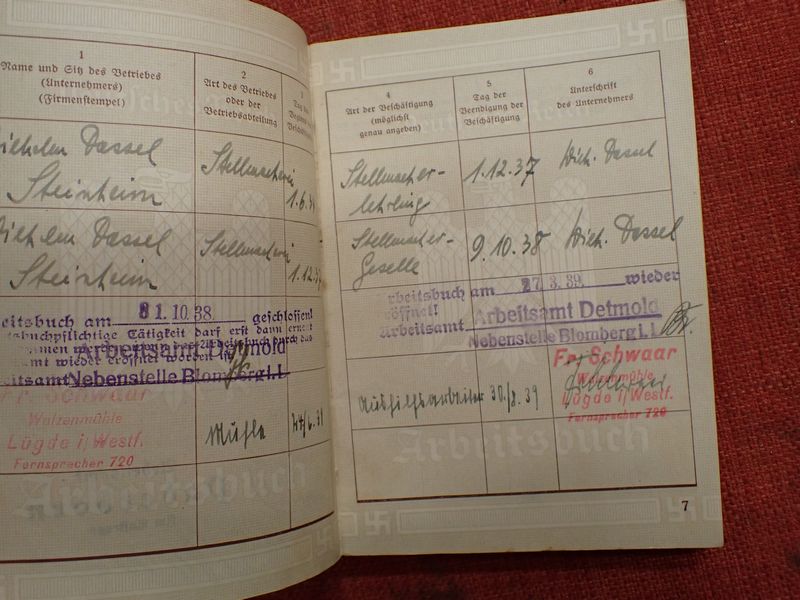 1
Name und Sitz des Betriebes
(Unternehmers)
(Firmenstempel)
2
Art des Betriebes
oder der
Betriebsabteilung
3
Tag des
Wilhelm Dassel
Steinheim
Stellmacherei
1.6.
Wilhelm Dassel
Steinheim
Stellmacherei
1.12.37
eitsbuch am 31.10.38. geschlossen!
tsbuchpflichtige Tätigkeit darf erst dann erneut
Arbeitsamt Detmold
amt wieder eröffnet worden ist
eitsamt Nebenstelle Blomberg i. L.
Fr. Schwaar
Walzenmühle
Lügde i/Westf.
Fernsprecher 720
Mühle
Arbeitsbuch
4
Art der Beschäftigung
(möglichst
genau angeben)
5
Tag der
Beendigung der
Beschäftigung
6
Unterschrift
des Unternehmers
Stellmacher-
lehrling
1.12.37
Wilh. Dassel
Stellmacher-
Geselle
9.10.38
Wilh. Dassel
rbeitsbuch am 27.3.39. wieder
eröffnet!
Arbeitsamt Arbeitsamt Detmold
Nebenstelle Blomberg i. L.
Fr. Schwaar
Walzenmühle
Lügde i/Westf.
Fernsprecher 720
Aushilfsarbeiter
30/8.39
Arbeitsbuch
7